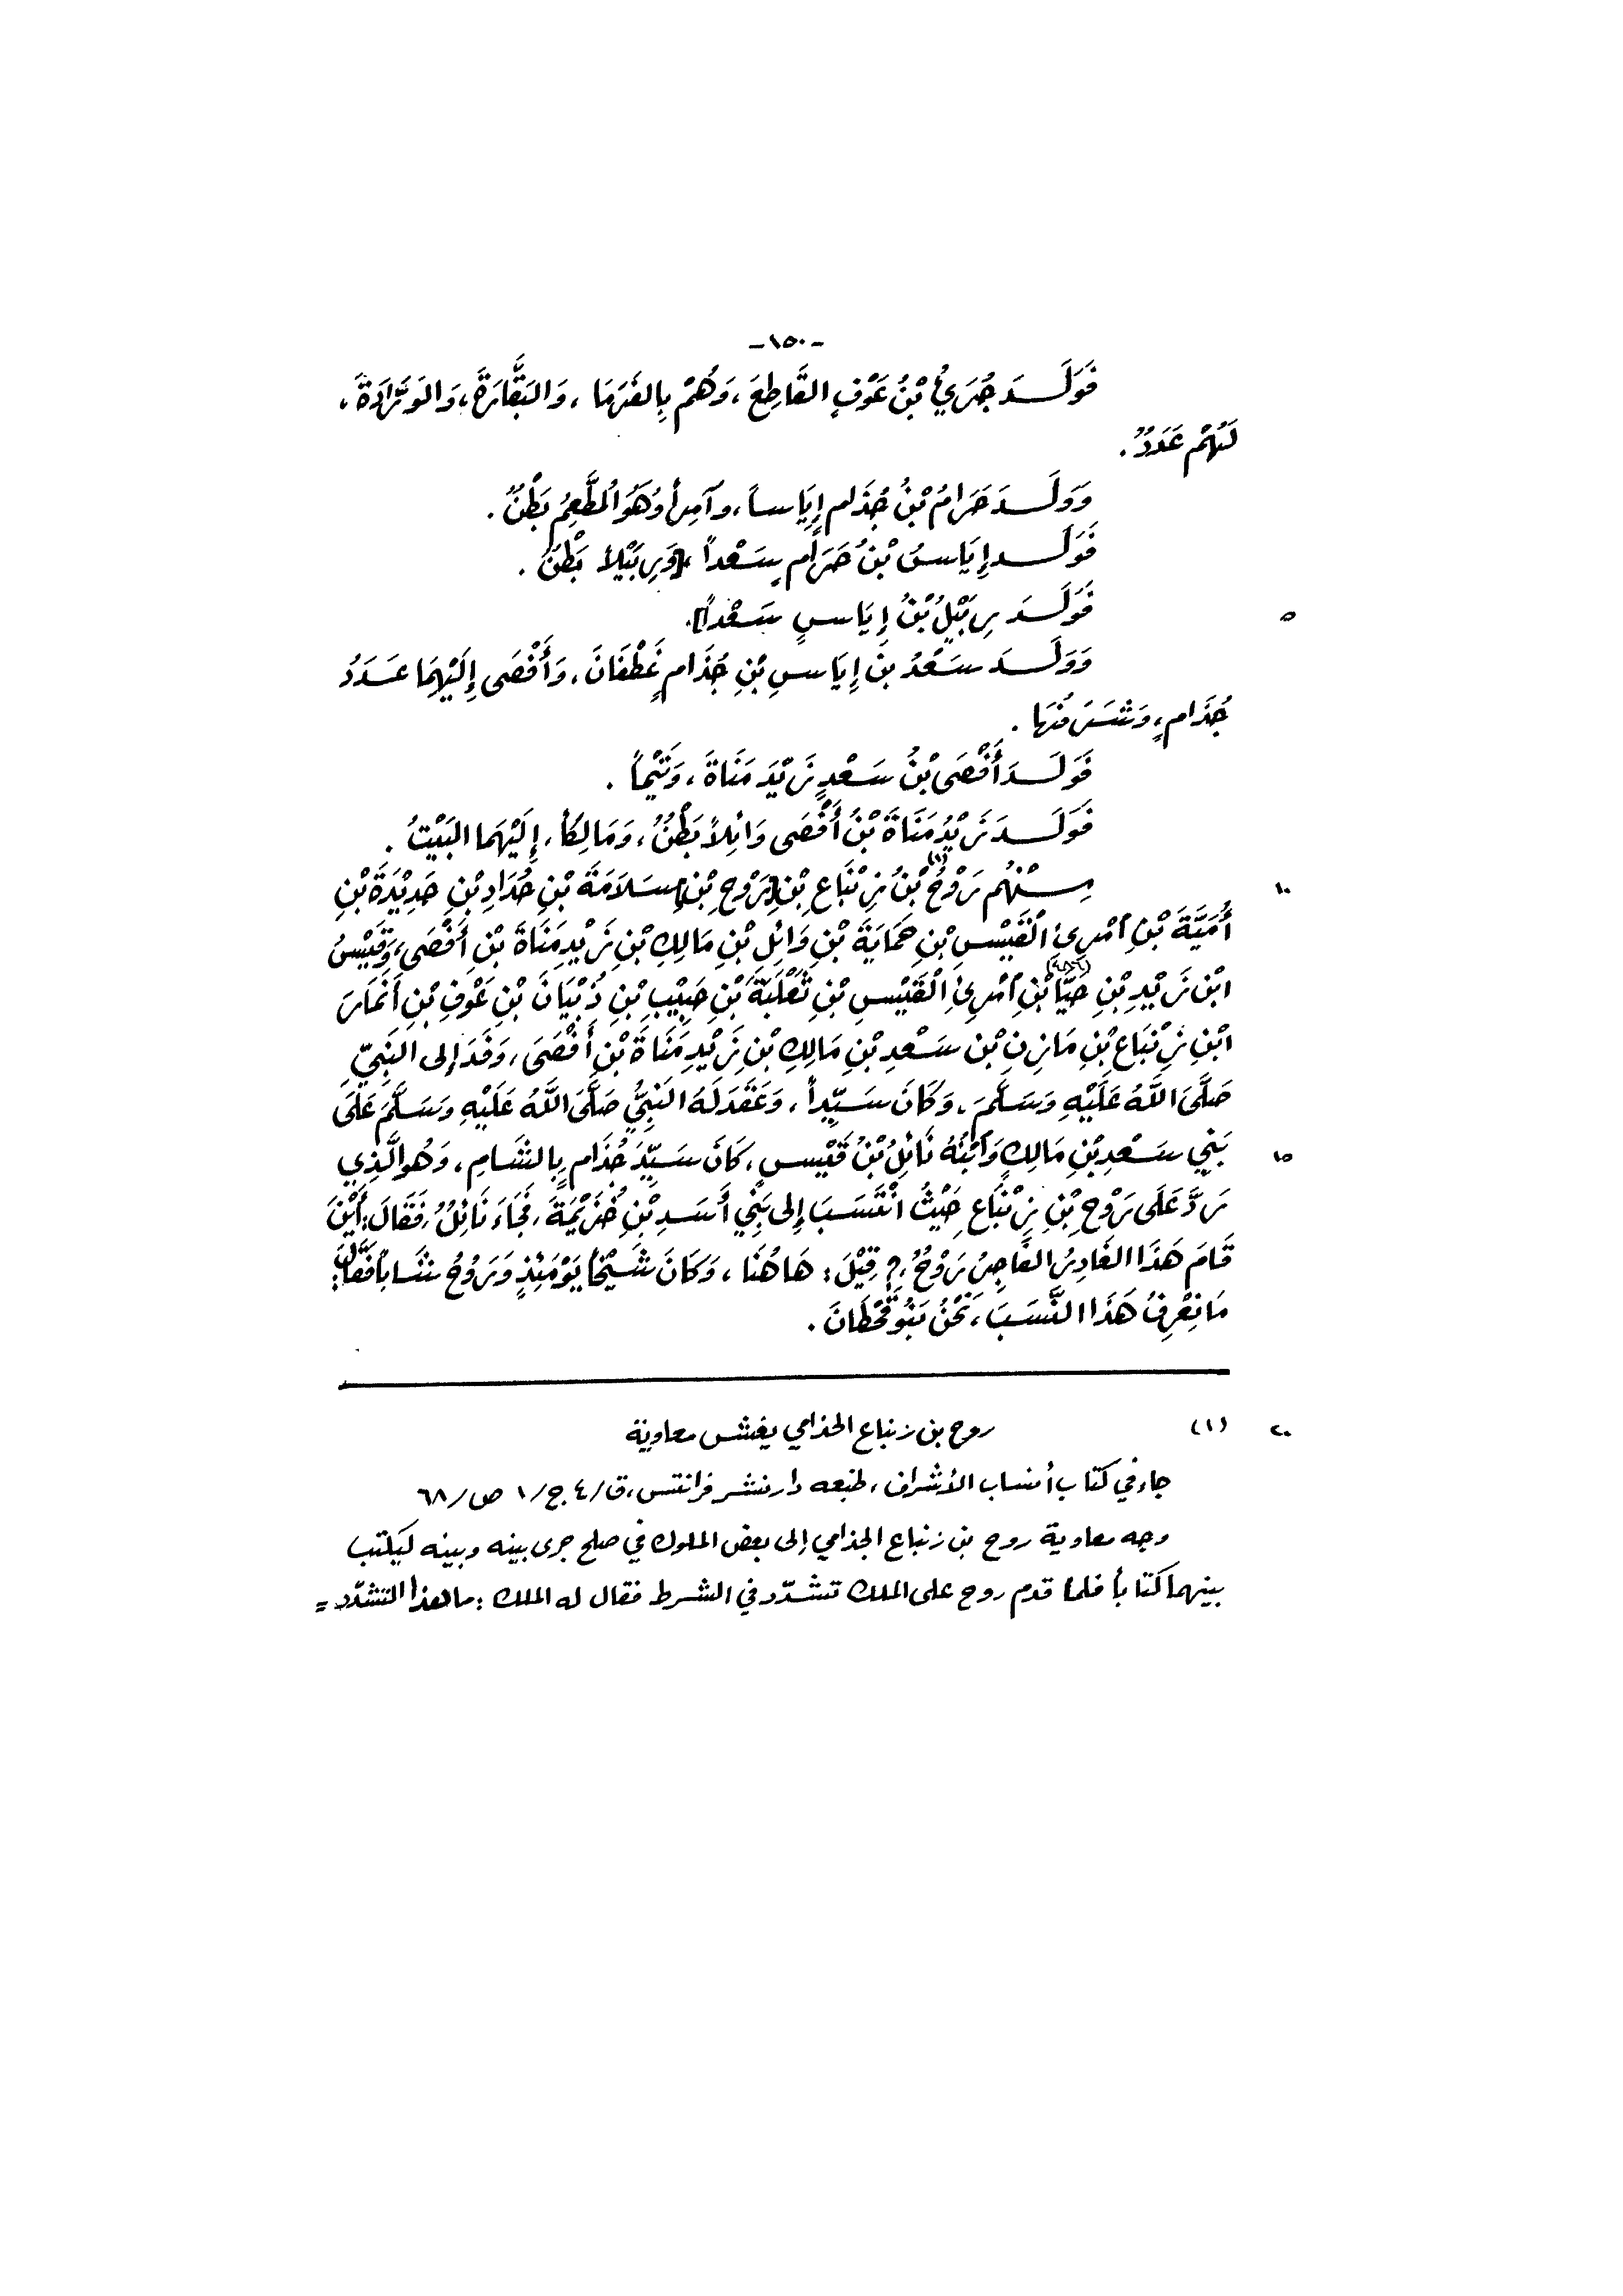 -١٥٠-
فَوَلَدَ جُرَيُّ بْنُ عَوْفٍ القَاطِعَ، وَهُمْ بِالفَرَمَا، وَالبَقَّارَةَ، وَالوَرَّادَةَ،
لَهُمْ عَدَدٌ.
وَوَلَدَ حَرَامُ بْنُ جُذَامٍ إِيَاساً، وَآمِراً وَهُوَ المُطَّعِمُ بَطْنٌ.
فَوَلَدَ إِيَاسُ بْنُ حَرَامٍ سَعْداً [وَرِبَيْلاً بَطْنٌ.
٥ فَوَلَدَ رِبَيْلُ بْنُ إِيَاسٍ سَعْداً].
وَوَلَدَ سَعْدُ بنُ إِيَاسِ بْنِ جُذَامٍ غَطْفَانَ، وَأَفْصَى إِلَيْهِمَا عَدَدُ
جُذَامٍ، وَشَرَفُهَا.
فَوَلَدَ أَفْصَى بْنُ سَعْدٍ زَيْدَ مَنَاةَ، وَتَيْماً.
فَوَلَدَ زَيْدُ مَنَاةَ بْنُ أَفْصَى وَائِلاً بَطْنٌ، وَمَالِكاً، إِلَيْهَما البَيْتُ.
١٠ مِنْهُم رَوْحُ (١) بْنُ زِنْبَاعِ بْنِ [رَوْحِ بْنِ] سَلَامَةَ بْنِ حُدَادِ بْنِ حَدِيْدَةَ بْنِ
أُمَيَّةَ بْنِ امْرِئِ القَيْسِ بْنِ حَمَايَةَ بْنِ وَائِلِ بْنِ مَالِكِ بْنِ زَيْدِ مَنَاةَ بْنِ أَفْصَى، وَقَيْسُ
ابْنُ زَيْدِ بْنِ حَيَّا بْنِ امْرِئِ القَيْسِ بْنِ ثَعْلَبَةَ بْنِ حَبِيْبِ بْنِ ذُبْيَانَ بْنِ عَوْفِ بْنِ أَنْمَارَ
ابْنِ زِنْبَاعِ بْنِ مَازِنِ بْنِ سَعْدِ بْنِ مَالِكِ بْنِ زَيْدِ مَنَاةَ بْنِ أَفْصَى، وَفَدَ إلى النَبِيِّ
صَلَّى اللَّهُ عَلَيْهِ وَسَلَّمَ، وَكَانَ سَيِّداً، وَعَقَدَ لَهُ النَبِيُّ صَلَّى اللَّهُ عَلَيْهِ وَسَلَّمَ عَلَى
١٥ بَنِي سَعْدِ بْنِ مَالِكٍ وَابْنُهُ نَائِلُ بْنُ قَيْسٍ، كَانَ سَيِّدَ جُذَامٍ بِالشَّامِ، وَهُو الَّذِي
رَدَّ عَلَى رَوْحِ بْنِ زِنْبَاعٍ حَيْثُ انْتَسَبَ إلى بَنِي أَسَدِ بْنِ خُزَيْمَةَ، فَجَاءَ نَائِلُ، فَقَالَ: أَيْنَ
قَامَ هَذَا الغَادِرُ الفَاجِرُ رَوْحٌ، ؟ قِيْلَ: هَاهُنَا، وَكَانَ شَيْخاً يَوْمَئِذٍ وَرَوْحُ شَابّاً فَقَالَ:
مَا نَعْرِفُ هَذَا النَّسَبَ، نَحْنُ بَنُو قَحْطَانَ.
٢٠ (١) روح بن زنباع الجذامي يغشّ معاوية
جاء في كتاب أنساب الأشراف، طبعه دار نشر فرانتس، ق/٤ ج/١ ص/٦٨
وجه معاوية روح بن زنباع الجذامي إلى بعض الملوك في صلح جرى بينه وبينه ليَكتب
بينهما كتاباً فلمّا قدم روح على الملك تشدّد في الشرط فقال له الملك: ما هذا التشدّد =